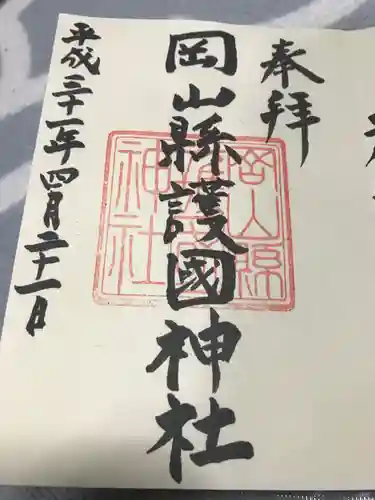 奉拝
岡山縣護國神社
平成三十一年四月二十一日
岡山縣
護國
神社